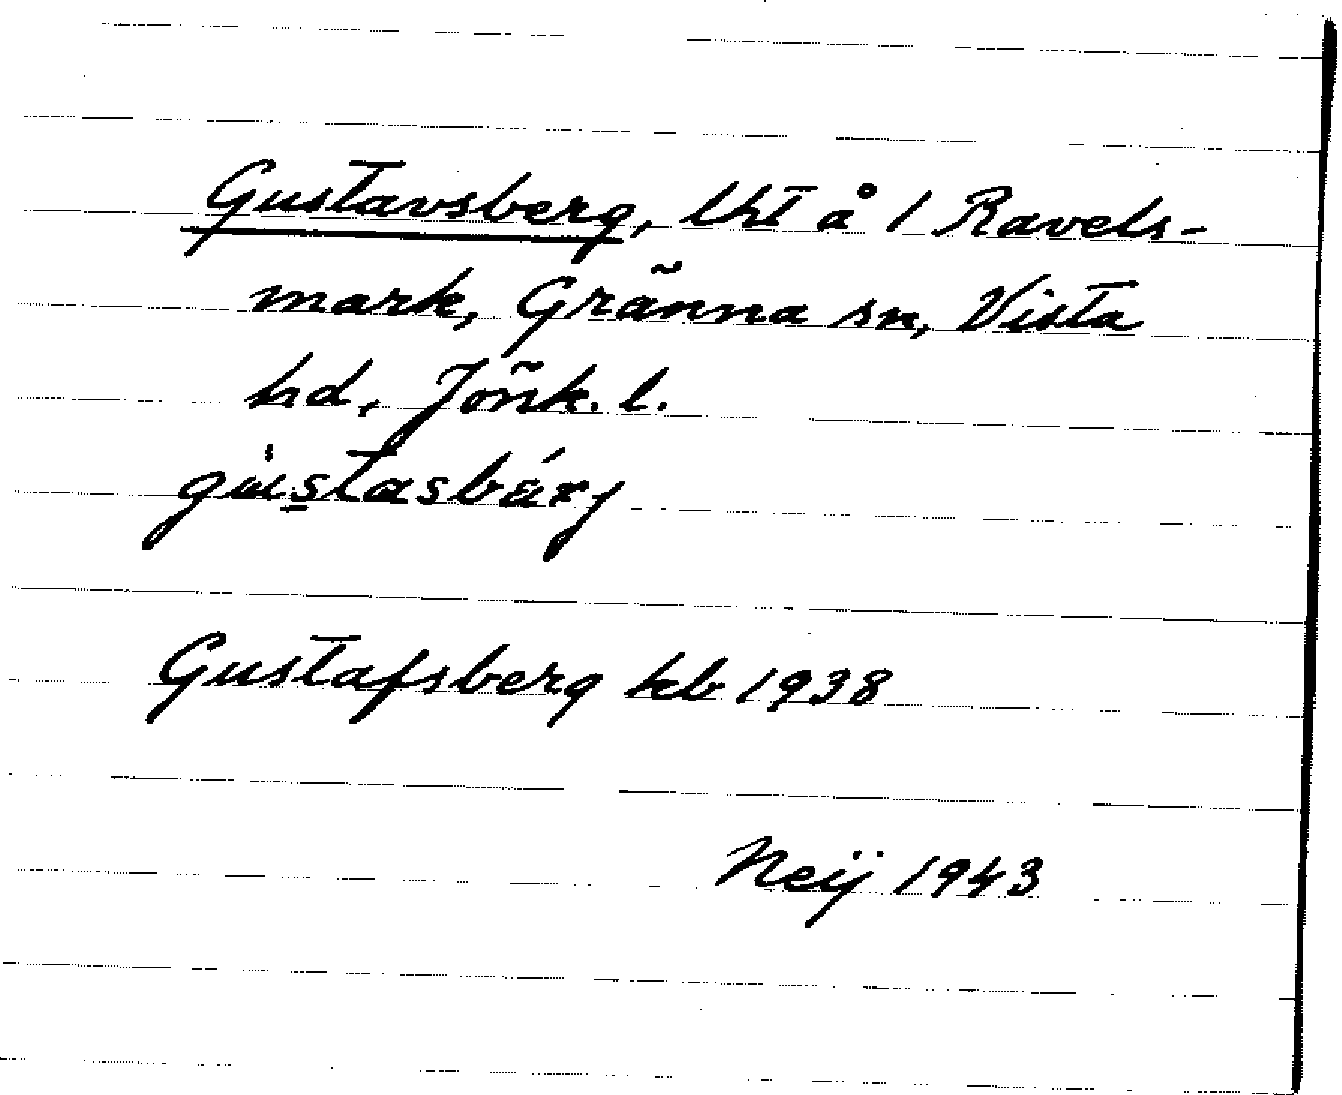 Gustavsberg, lht å 1 Ravels-
mark, Gränna sn, Vista
hd, Jönk. l.
gùstasbárj
Gustafsberg kb 1938
Neij 1943